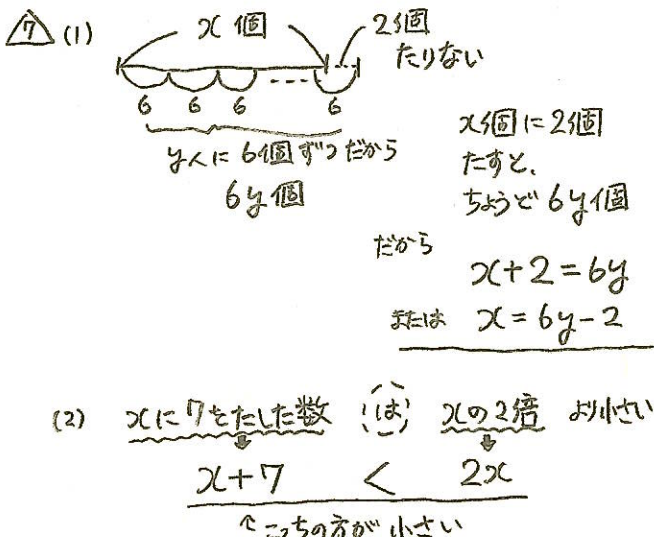 7 (1)
x個 2個
たりない
6 6 6 6
y人に6個ずつだから
6y個
x個に2個
たすと、
ちょうど6y個
だから
x+2=6y
または x=6y-2
(2) xに7をたした数 は xの2倍 より小さい
x+7 < 2x
↑こっちの方が小さい